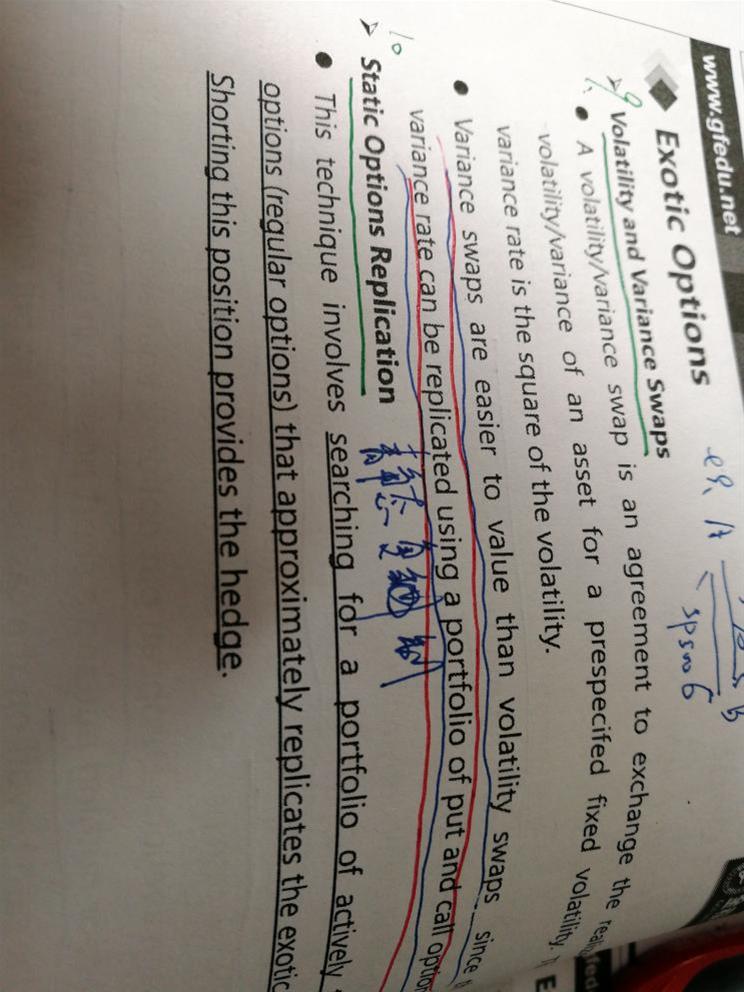 www.gfedu.net
Exotic Options
9
Volatility and Variance Swaps
A volatility/variance swap is an agreement to exchange the
volatility/variance of an asset for a prespecifed fixed volatility.
variance rate is the square of the volatility.
Variance swaps are easier to value than volatility swaps since
variance rate can be replicated using a portfolio of put and call option
10
Static Options Replication
This technique involves searching for a portfolio of actively
options (regular options) that approximately replicates the exotic
Shorting this position provides the hedge.